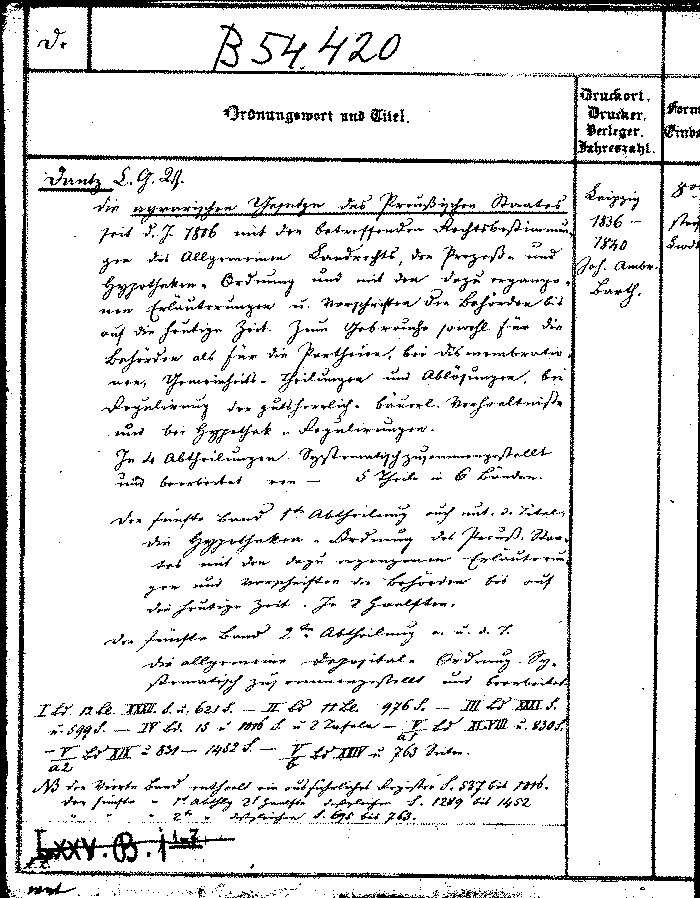 D.
B 54.420
Ordnungswort und Titel.
Druckort.
Drucker.
Verleger.
Jahreszahl.
Form
Einba
Dantz C. G. W.
die agrarischen Gesetze des Preußischen Staates
seit d. J. 1806 mit den betreffenden Rechtsbestimmun
gen des Allgemeinen Landrechts, der Prozeß- und
Hypotheken-Ordnung und mit den dazu ergange-
nen Erläuterungen u. Vorschriften der Behörden bis
auf die heutige Zeit. Zum Gebrauche sowohl für die
Behörden als für die Partheien, bei Dismembratio-
nen, Gemeinheits-Theilungen und Ablösungen, bei
Regulirung der gutsherrlich-bäuerl. Verhaeltnisse
und bei Hypothek-Regulirungen.
In 4 Abtheilungen. Systematisch zusammengestellt
und bearbeitet von — 5 Theile in 6 Bänden.
Der fünfte Band 1te Abtheilung auch unt. d. Titel:
die Hypotheken-Ordnung des Preuß. Staa-
tes mit den dazu ergangenen Erläuterun
gen und Vorschriften der Behörden bis auf
die heutige Zeit. In 2 Haelften.
Der fünfte Band 2te Abtheilung a. u. d. T.
die allgemeine Deposital-Ordnung. Sy-
stematisch zusammengestellt und bearbeitet
I Bd. XXXII S. u. 621 S. — II Bd 976 S. — III Bd XXXI S.
u. 599 S. — IV Bd. 15 u 1016 S. u 2 Tafeln — V a1 Bd XLVIII u. 830 S.
— V a2 Bd XIX u 831 — 1452 S. — V b Bd XXIV u 763 Seiten.
NB der Vierte Band enthaelt ein ausführliches Register S. 537 bis 1016.
der fünfte " 1te Abthlg 2te Haelfte desgleichen S. 1289 bis 1452
" " " 2te " desgleichen S. 695 bis 763.
Leipzig
1836 —
1840
Joh. Ambr.
Barth.
8o
LXXV. B. j 1-7